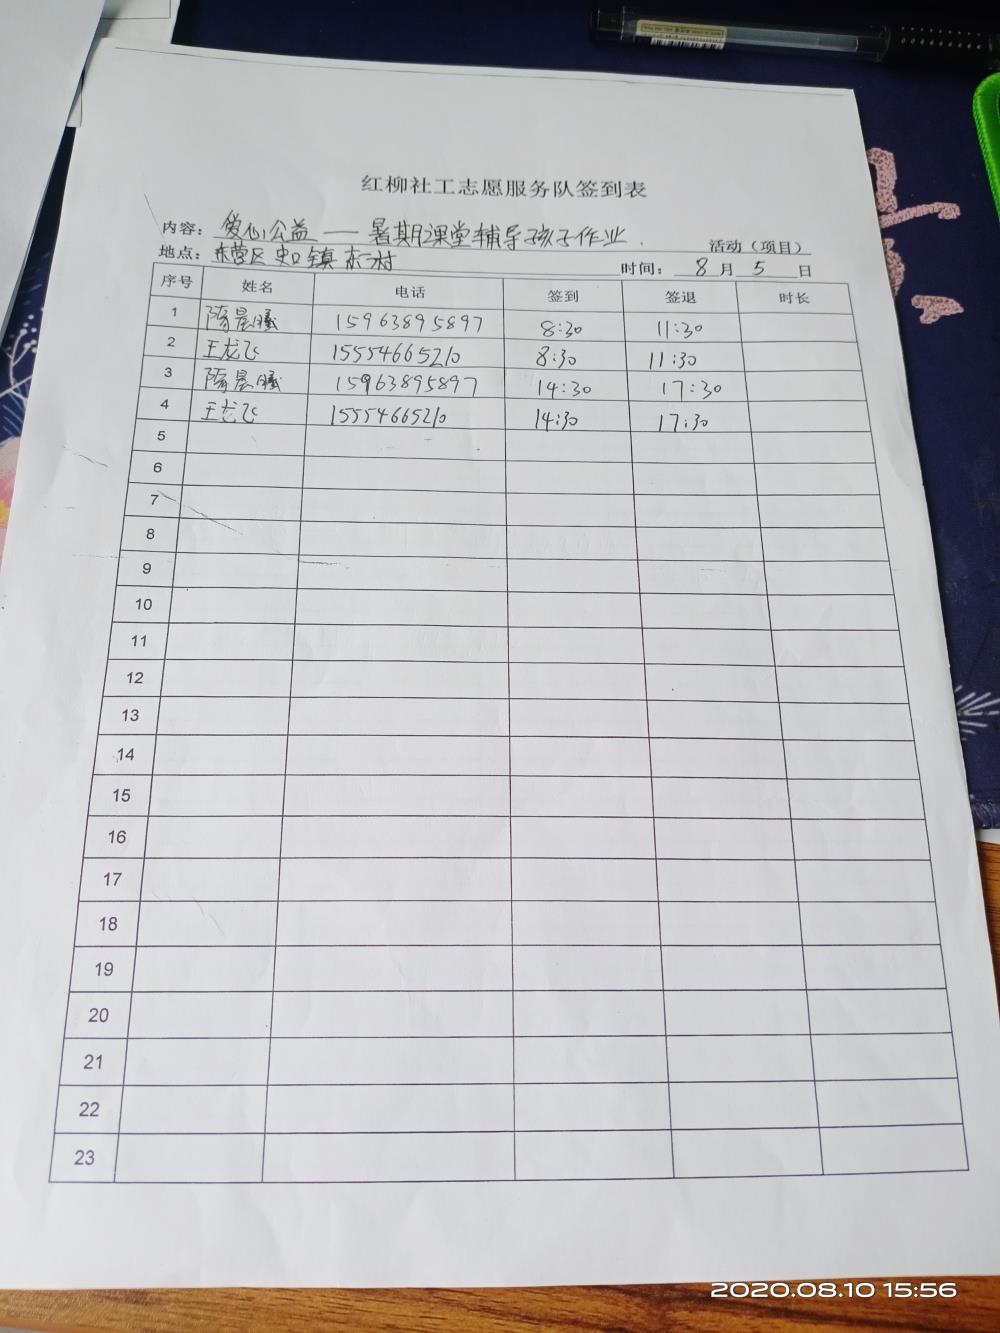 红柳社工志愿服务队签到表
内容: 爱心公益 — 暑期课堂辅导孩子作业. 活动（项目）
地点: 东营区 史口镇 东一村 时间: 8 月 5 日
序号 姓名 电话 签到 签退 时长
1 隋晨曦 15963895897 8:30 11:30
2 王龙飞 15554665210 8:30 11:30
3 隋晨曦 15963895897 14:30 17:30
4 王龙飞 15554665210 14:30 17:30
5
6
7
8
9
10
11
12
13
14
15
16
17
18
19
20
21
22
23
2020.08.10 15:56